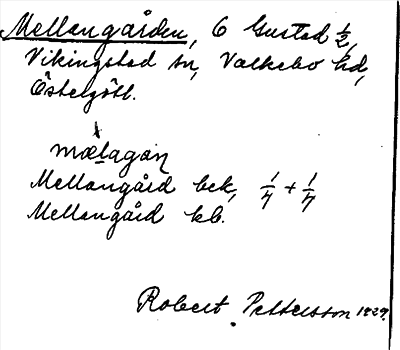 Mellangården, 6 Gustad ½,
Vikingstad sn, Valkebo hd,
Östergötl.
mæl̨agan
Mellangård bek, 1/4 + 1/4
Mellangård kb.
Robert Pettersson 1929.